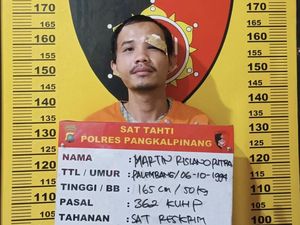 170 170
160 160
150 150
140 140
130 130
120 120
110 110
100
SAT TAHTI
POLRES PANGKALPINANG
NAMA : MARTIN RISLANO PUTRA
TTL / UMUR : PALEMBANG/06-10-1994
TINGGI / BB : 165 cm / 50 kg
PASAL : 362 KUHP
TAHANAN : SAT RESKRIM